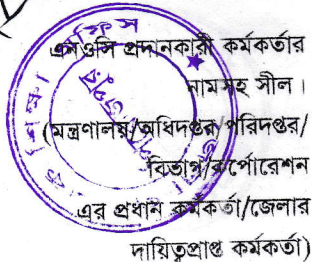 এনওসি প্রদানকারী কর্মকর্তার
নামসহ সীল।
(মন্ত্রণালয়/অধিদপ্তর/পরিদপ্তর/
বিভাগ/কর্পোরেশন
এর প্রধান কর্মকর্তা/জেলার
দায়িত্বপ্রাপ্ত কর্মকর্তা)